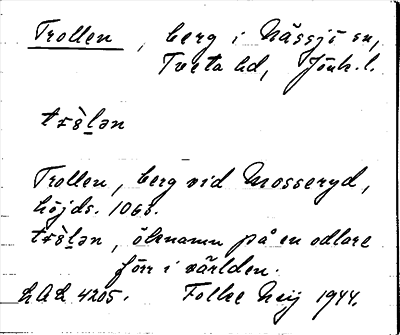 Trollen, berg i Nässjö sn,
Tveta hd, Jönk. l.
trò̀lən
Trollen, berg vid Mosseryd,
höjds. 1065.
trò̀lən, öknamn på en odlare
förr i världen.
LAL 4205. Folke Neij 1944.